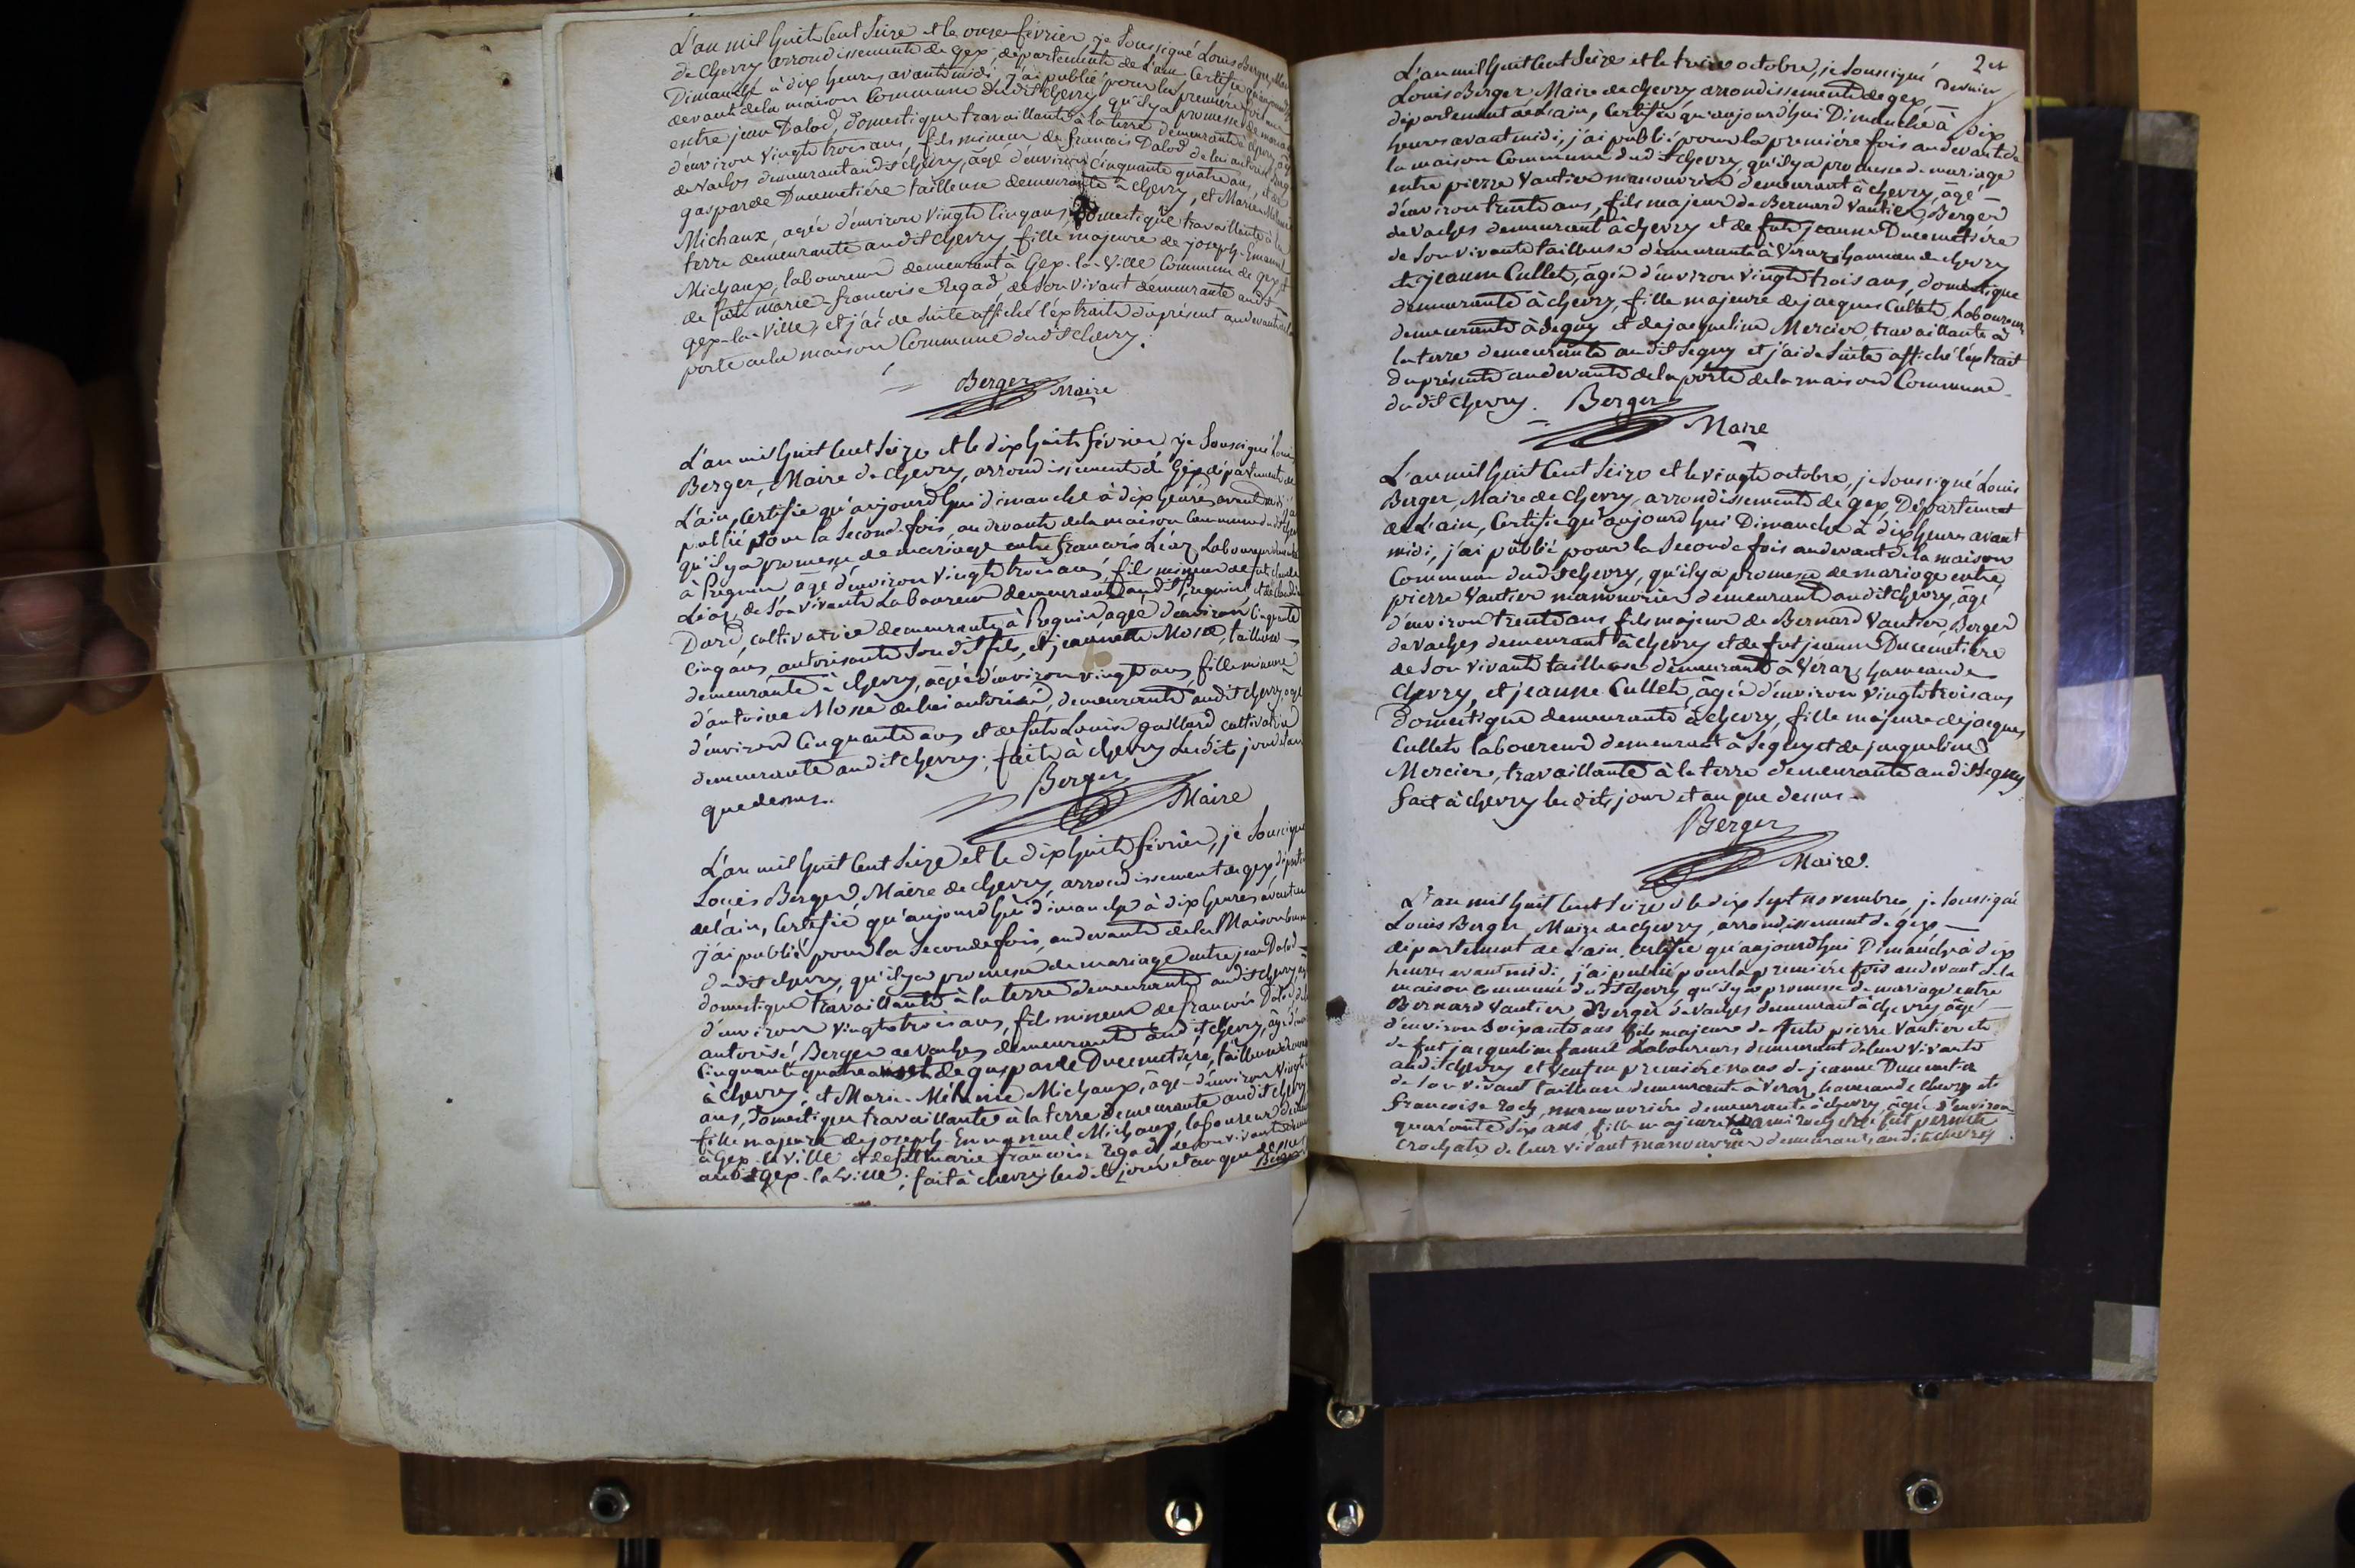 L'an mil huit cent seize et le onze février je soussigné Louis Berger, Maire
de chevry arrondissement de gex, département de L'ain, Certifie qu'aujourd'hui
Dimanche à dix heures avant midi, j'ai publié pour la première fois au
devant de la maison Commune dudit chevry, qu'il y a promesse de mariage
entre jean Dalod, domestique travaillant à la terre demeurant à chevry, âgé
d'environ vingt trois ans, fils mineur de francois Dalod de lui autorisé, Berger
de vaches demeurant audit chevry, âgé d'environ cinquante quatre ans, et de
gasparde Ducemetiére tailleuse demeurante à chevry, et Marie Mélanie
Michaux, agée d'environ vingt cinq ans, domestique travaillante à la
terre demeurante audit chevry, fille majeure de joseph-Emanuel
Michaux, laboureur demeurant à Gex-la-ville Commune de gex, et
de fut marie francoise Regad de son vivant demeurante audit
gex-la-ville, et j'ai de suite affiché l'extrait du présent au devant de la
porte de la maison Commune dudit chevry.
Berger Maire
L'an mil huit cent seize et le dix huit février, je soussigné Louis
Berger, Maire de chevry, arrondissement de Gex département de
L'ain, Certifie qu'aujourd'hui dimanche à dix heures avant midi j'ai
publié pour la seconde fois au devant de la maison Commune dudit chevry
qu'il y a promesse de mariage entre francois Léaz, Laboureur demeurant
à Pregnin âgé d'environ vingt trois ans, fils mineur de fut
Léaz, de son vivant Laboureur demeurant audit Pregnin, et de
Dard, cultivatrice demeurante à Pregnin, agée d'environ cinquante
cinq ans, autorisante sondit fils, et jeannette Moné, tailleuse
demeurante à chevry, agée d'environ vingt ans, fille mineure
d'antoine Moné de lui autorisé, demeurant audit chevry, agé
d'environ cinquante ans et de fute Louise gaillard cultivatrice
demeurante audit chevry; fait à chevry lesdits jour et an
que dessus.
Berger Maire
L'an mil huit cent seize et le dix huit février, je soussigné
Louis Berger, Maire de chevry, arrondissement de gex, départ
de l'ain, Certifie qu'aujourd'hui dimanche à dix heures avant
j'ai publié pour la seconde fois, au devant de la Maison
dudit chevry, qu'il y a promesse de mariage entre jean Dalod
domestique travaillant à la terre demeurant audit chevry, agé
d'environ vingt trois ans, fils mineur de francois Dalod, de lui
autorisé, Berger de vaches demeurant audit chevry, âgé
cinquante quatre ans et de gasparde Ducemetiére, tailleuse
à chevry, et Marie-Mélanie Michaux, âgée d'environ vingt
ans, domestique travaillante à la terre demeurante audit chevry
fille majeure de joseph-Emmanuel Michaux, laboureur
à Gex-la-ville et de fut marie francoise Regad, de son vivant
audit gex-la-ville; fait à chevry lesdits jour et an que dessus
Berger
2 et
Dernier
L'an mil huit cent seize et le treize octobre, je soussigné
Louis Berger Maire de chevry arrondissement de gex,
département de L'ain, Certifie qu'aujourd'hui Dimanche à dix
heures avant midi, j'ai publié pour la première fois au devant de
la maison Commune dudit chevry, qu'il y a promesse de mariage
entre pierre Vautier manouvrier demeurant à chevry, âgé
d'environ trente ans, fils majeur de Bernard Vautier, Berger
de vaches demeurant à chevry et de fute jeanne Ducemetiére
de son vivant tailleuse demeurante à Véraz, hameau de chevry
et jeanne Cullet, âgée d'environ vingt trois ans, domestique
demeurante à chevry, fille majeure de jacques Cullet, Laboureur
demeurant à Segny et de jacqueline Mercier, travaillante à
la terre demeurante audit Segny et j'ai de suite affiché l'extrait
du présent au devant de la porte de la maison Commune
dudit chevry. Berger
Maire
L'an mil huit cent seize et le vingt octobre, je soussigné Louis
Berger, Maire de chevry, arrondissement de gex, Département
de L'ain, Certifie qu'aujourd'hui Dimanche à dix heures avant
midi, j'ai publié pour la seconde fois au devant de la maison
Commune dudit chevry, qu'il y a promesse de mariage entre
pierre Vautier manouvrier demeurant audit chevry, âgé
d'environ trente ans fils majeur de Bernard Vautier, Berger
de vaches demeurant à chevry et de fut jeanne Ducemetiére
de son vivant tailleuse demeurant à Véraz, hameau de
chevry, et jeanne Cullet, âgée d'environ vingt trois ans
Domestique demeurante à chevry, fille majeure de jacques
Cullet laboureur demeurant à Segny et de jacqueline
Mercier, travaillante à la terre demeurante audit Segny
fait à chevry lesdits jour et an que dessus.
Berger
Maire.
L'an mil huit cent seize et le dix sept novembre, je soussigné
Louis Berger, Maire de chevry, arrondissement de gex
département de L'ain, Certifie qu'aujourd'hui Dimanche à dix
heures avant midi, j'ai publié pour la première fois au devant de la
maison commune dudit chevry qu'il y a promesse de mariage entre
Bernard Vautier Berger de vaches demeurant à chevry âgé
d'environ soixante ans fils majeur de fut pierre Vautier et
de fut jacqueline famel Laboureurs demeurant de leur vivant
audit chevry et veuf en première noce de jeanne Ducemetiére
de son vivant tailleuse demeurante à Veraz, hameau de chevry et
francoise Roch, manouvriére demeurante à chevry, âgée d'environ
quarante six ans, fille majeure Roch et de fut pernette
Crochat de leur vivant manouvrier demeurant audit chevry